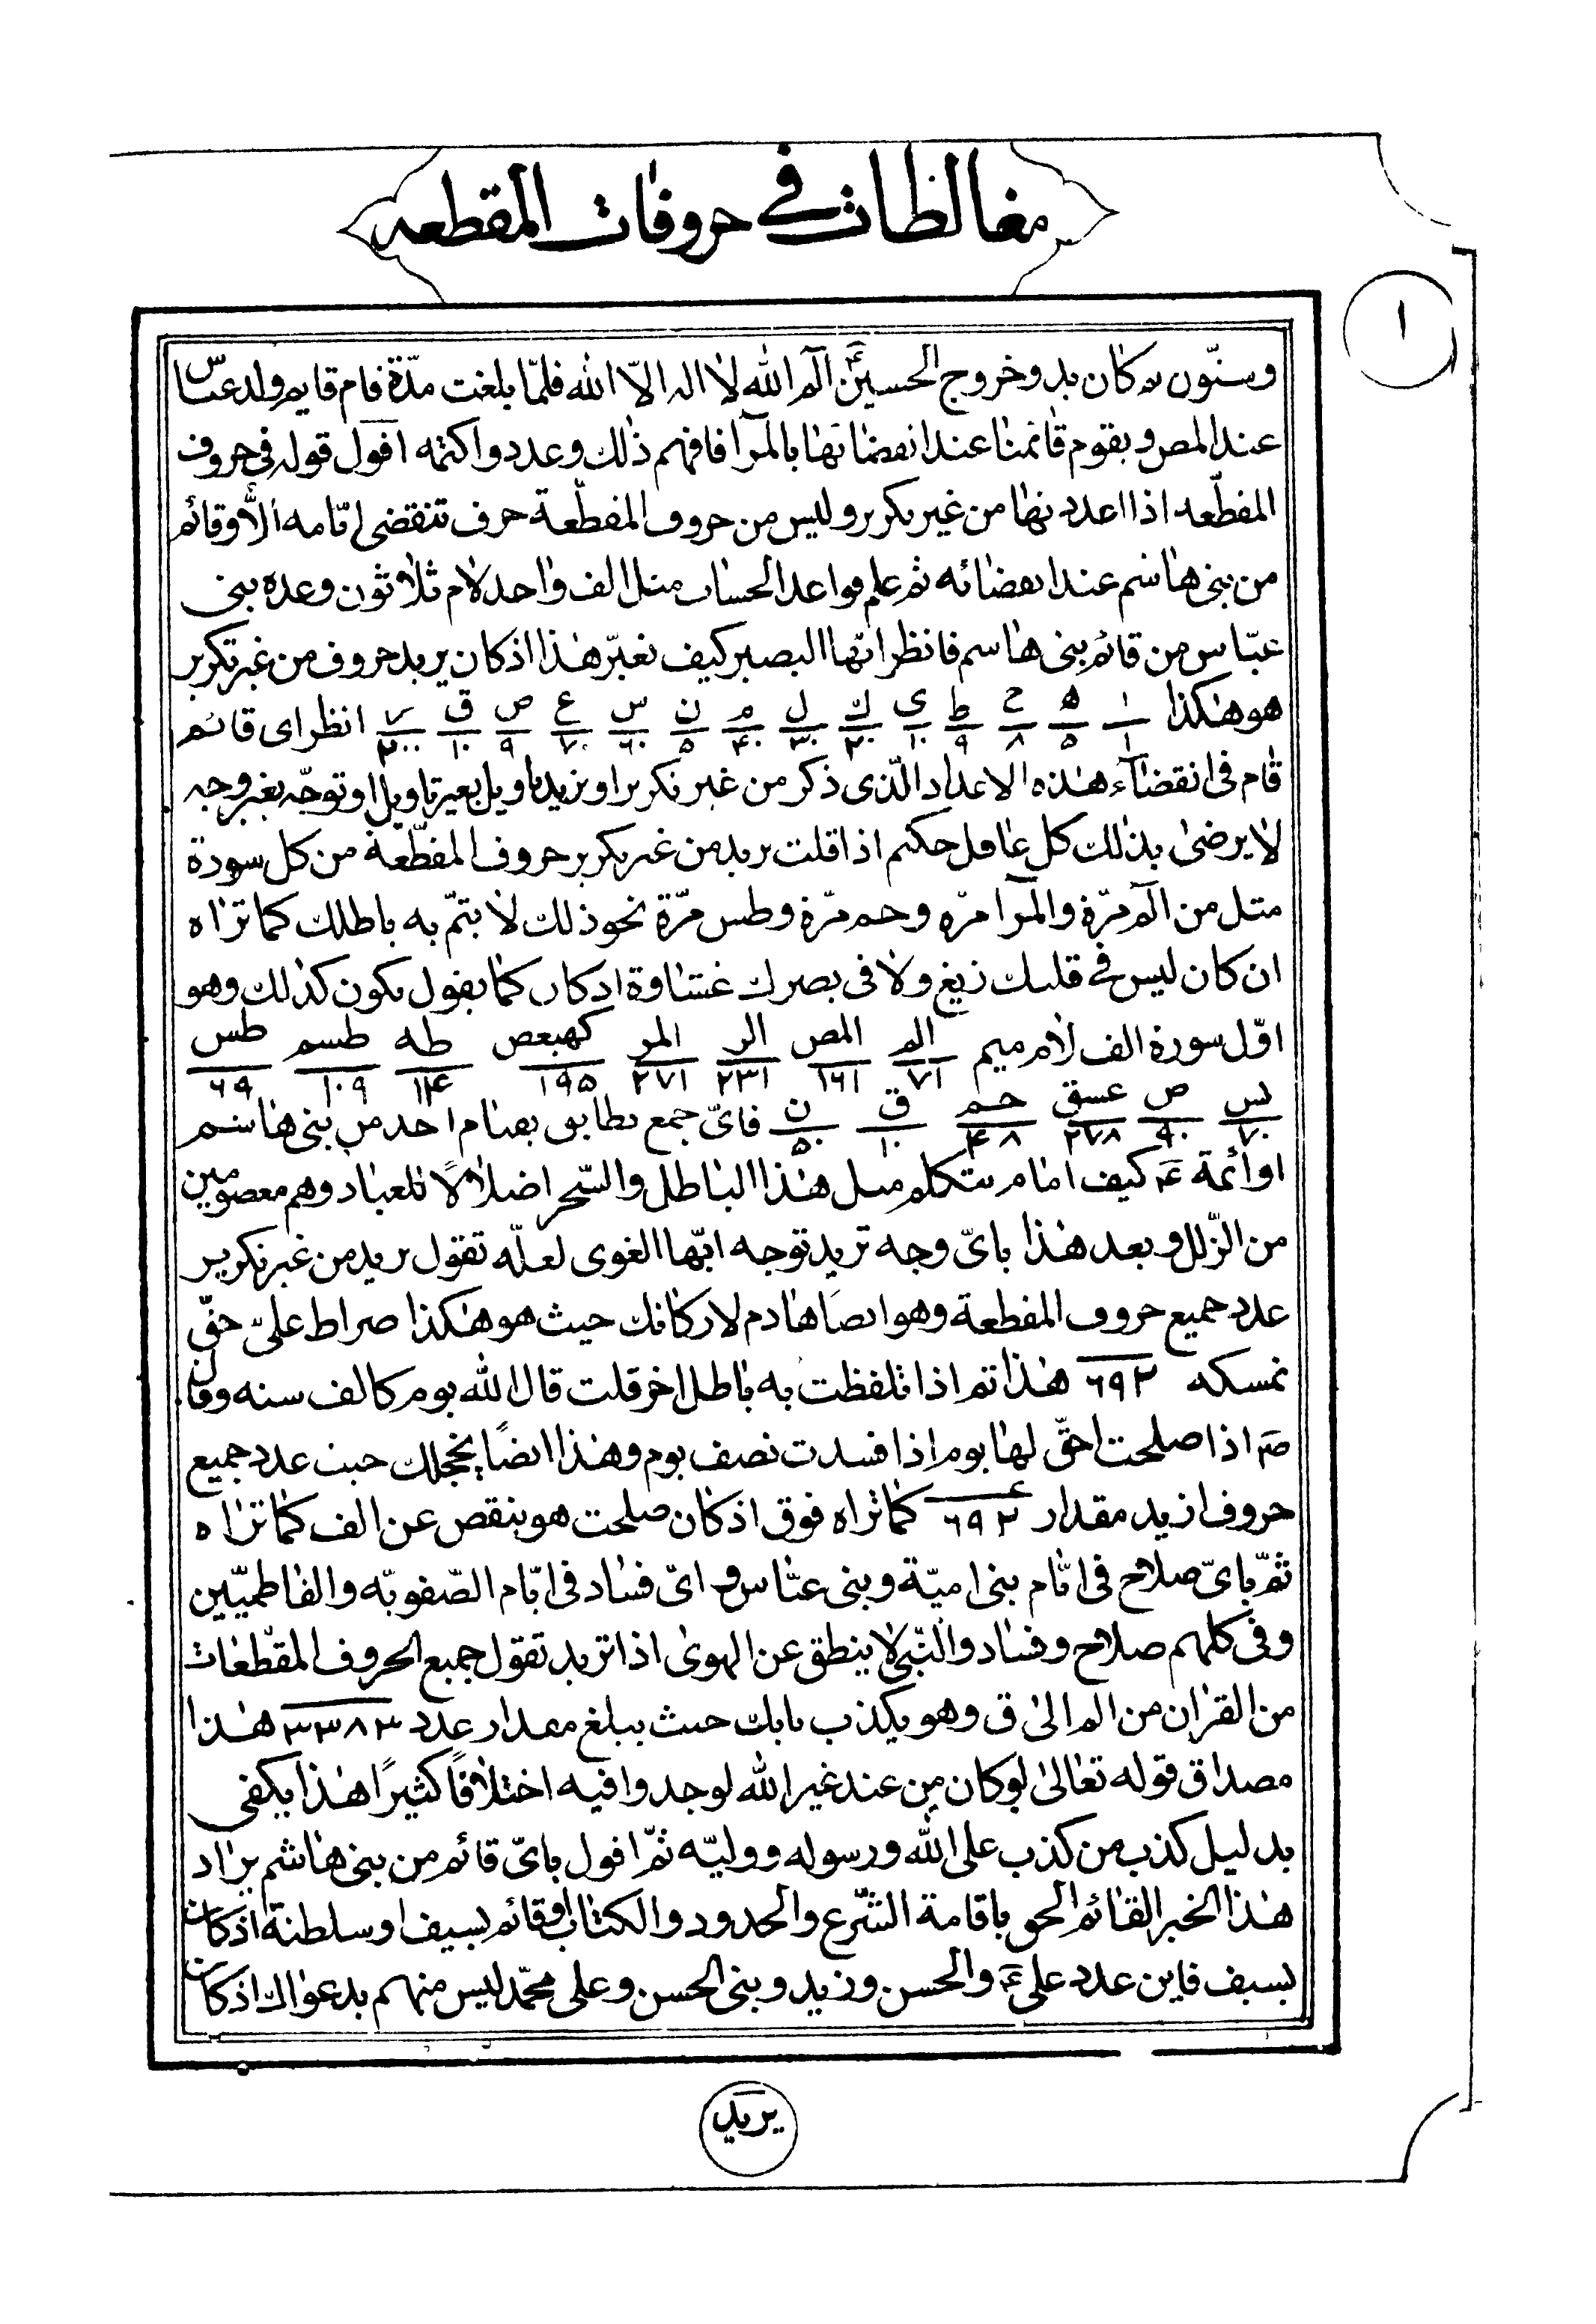 مغالطات فى حروفات المقطعه
١
وستّون كان بدو خروج الحسينؑ الٓم الله لا اله الّا الله فلمّا بلغت مدّة قام قايم ولد عبّاس
عند المص و يقوم قائمنا عند انقضائها بالمٓرا فافهم ذلك وعدد واكتمه اقول قوله فى حروف
المقطّعه اذا اعددتها من غير تكرير وليس من حروف المقطّعة حرف تنقضى ايّامه الّا وقائم
من بنى هاشم عند انقضائه ثم علم قواعد الحساب مثل الف واحد لام ثلاثون وعده بنى
عبّاس من قائم بنى هاشم فانظر ايّها البصير كيف تغيّر هذا اذ كان يريد حروف من غير تكرير
هو هكذا ا ه ح ط ى ك ل م ن س ع ص ق ر انظر اى قائم
١ ٥ ٨ ٩ ١٠ ٢٠ ٣٠ ۴٠ ٥ ٦٠ ٧٠ ٩ ١٠ ٢٠٠
قام فى انقضاء هذه الاعداد الّذى ذكر من غير تكرير او تزيد تاويل بغير تاويل او توجّه بغير وجه
لا يرضى بذلك كل عاقل حكيم اذا قلت يريد من غير تكرير حروف المقطّعة من كل سورة
مثل من الٓم مرّة والمٓرا مرّه وحم مرّة وطس مرّة نحو ذلك لا يتمّ به باطلك كما تراه
ان كان ليس فى قلبك زيغ ولا فى بصرك غشاوة اذ كان كما يقول يكون كذلك وهو
اوّل سورة الف لام ميم الم المص الر المر كهيعص طه طسم طس
٧١ ١٦١ ٢٣١ ٢٧١ ١٩٥ ١۴ ١٠٩ ٦٩
يس ص عسق حم ق ن فاىّ جمع يطابق بقيام احد من بنى هاشم
٧٠ ٩٠ ٢٧٨ ۴٨ ١٠ ٥٠
او أئمة ؑ كيف امام يتكلم مثل هذا الباطل والسّحر اضلالًا للعباد وهم معصومين
من الزّلل و بعد هذا باىّ وجه تريد توجه ايّها الغوى لعلّه تقول يريد من غير تكرير
عدد جميع حروف المقطعة وهو ايضا هادم لاركانك حيث هو هكذا صراط علىّ حقّ
نمسكه ٦٩٣ هذا ثم اذا تلفظت به باطل اخر قلت قال الله يوم كالف سنه وقال
صؐ اذا صلحت احقّ لها يوم اذا فسدت نصف يوم وهذا ايضًا يخجلك حيث عدد جميع
حروف ازيد مقدار ٦٩٣ كما تراه فوق اذ كان صلحت هو ينقص عن الف كما تراه
ثمّ باىّ صلاح فى ايّام بنى اميّة وبنى عبّاس و اىّ فساد فى ايّام الصّفويّه والفاطميّين
وفى كلهم صلاح وفساد والنّبى لا ينطق عن الهوى اذا تريد تقول جميع الحروف المقطّعات
من القران من الم الى ق وهو يكذب بابك حيث يبلغ مقدار عدد ٣٣٨٣ هذا
مصداق قوله تعالى لو كان من عند غير الله لوجدوا فيه اختلافًا كثيرًا هذا يكفى
بدليل كذب من كذب على الله ورسوله ووليّه ثمّ اقول باىّ قائم من بنى هاشم يراد
هذا الخبر القائم الحق باقامة الشّرع والحدود والكتاب او قائم بسيف او سلطنة اذ كان
بسيف فاين عدد علىؑ والحسن وزيد وبنى الحسن وعلى محمّد ليس منهم بدعواك اذ كان
يريد